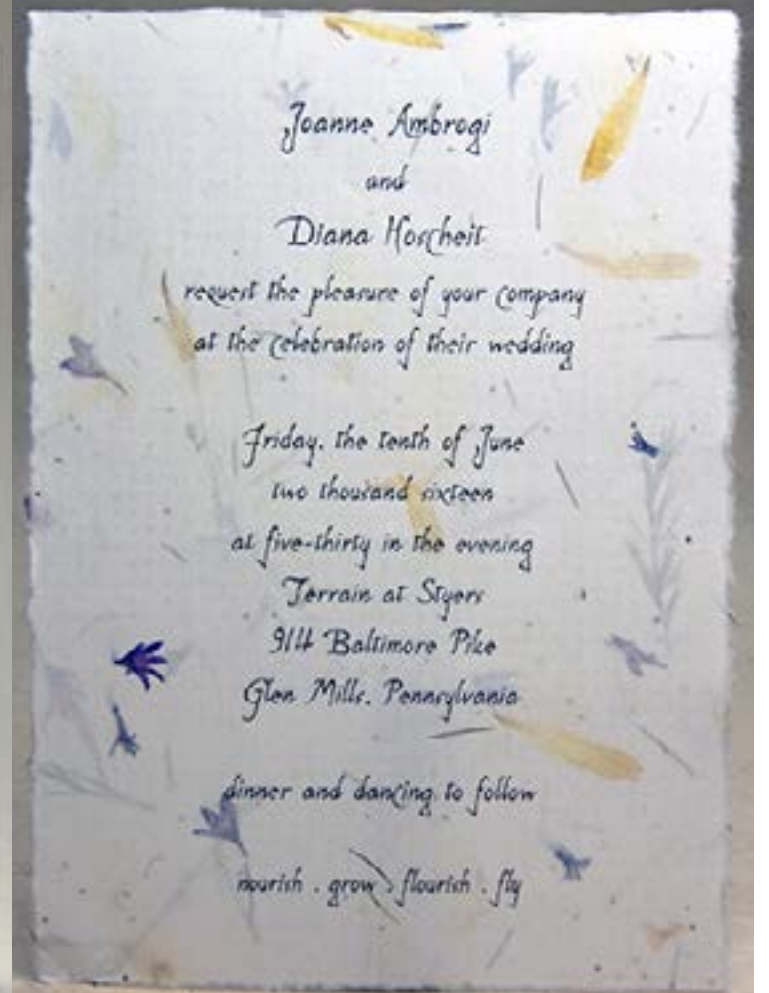 Joanne Ambrogi
and
Diana Hoscheit
request the pleasure of your company
at the celebration of their wedding
Friday, the tenth of June
two thousand sixteen
at five-thirty in the evening
Terrain at Styers
914 Baltimore Pike
Glen Mills, Pennsylvania
dinner and dancing to follow
nourish . grow . flourish . fly